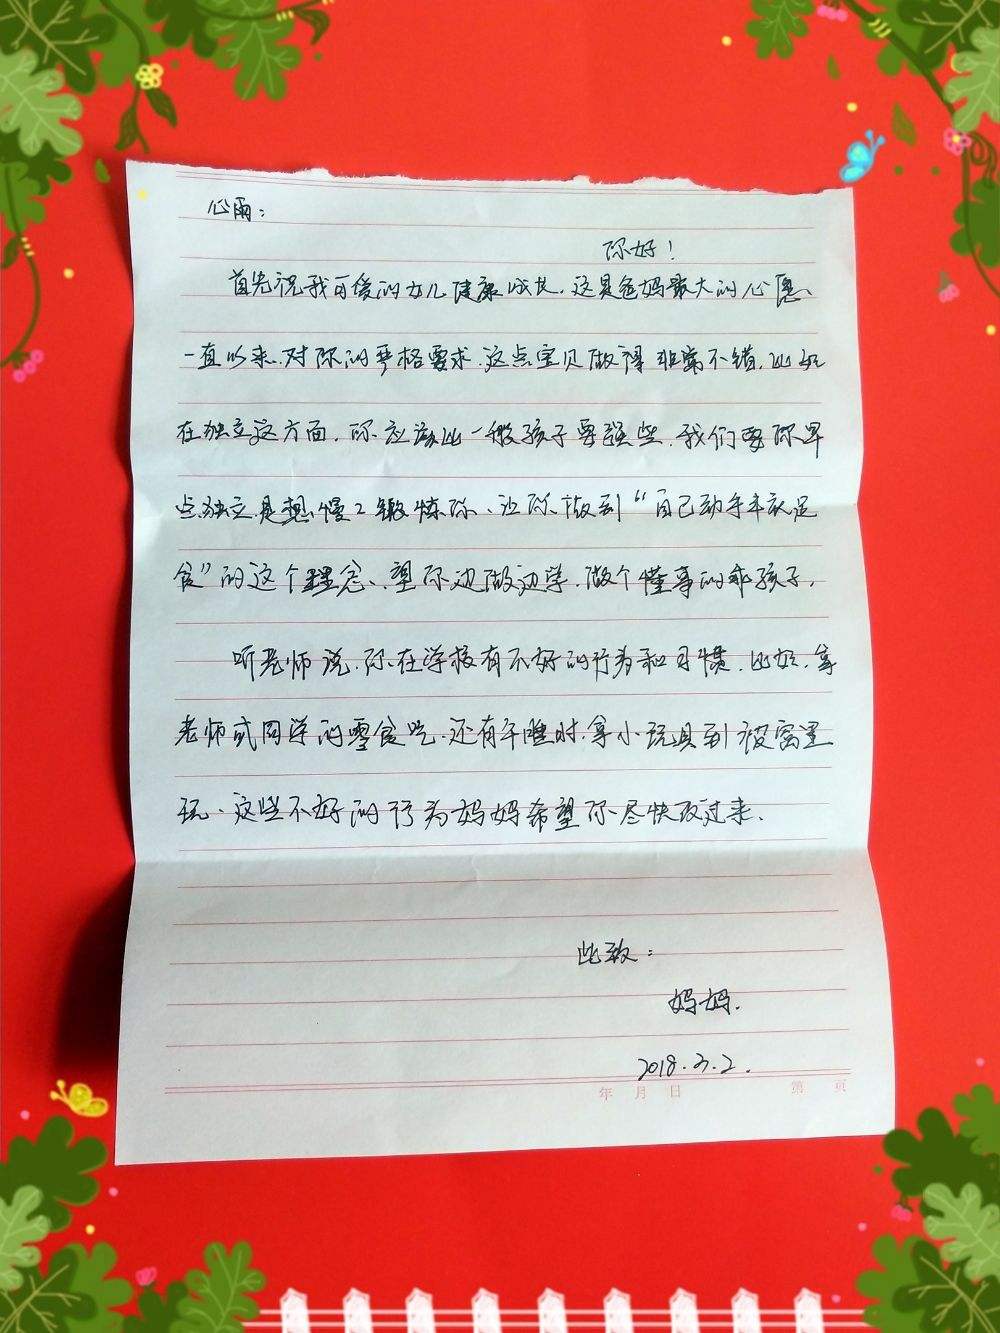 心雨：
你好！
首先祝我可爱的女儿健康成长，这是爸妈最大的心愿、
一直以来、对你的严格要求、这点宝贝做得非常不错，比如
在独立这方面，你应该比一般孩子要强些，我们要你早
点独立是想慢2锻炼你、让你做到“自己动手丰衣足
食”的这个理念、望你边做边学，做个懂事的乖孩子，
听老师说，你在学校有不好的行为和习惯，比如，拿
老师或同学的零食吃、还有午睡时，拿小玩具到被窝里
玩、这些不好的行为妈妈希望你尽快改过来、
此致：
妈妈.
2018.3.2.
年 月 日 第 页